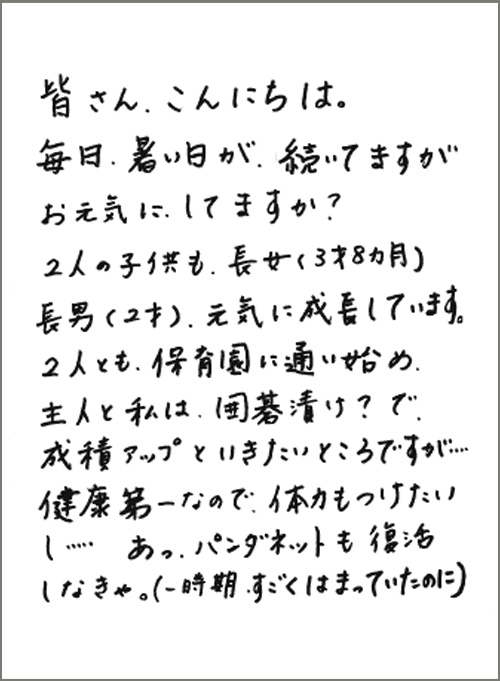 皆さん、こんにちは。
毎日、暑い日が、続いてますが
お元気に、してますか?
2人の子供も、長女(3才8カ月)
長男(2才)、元気に成長しています。
2人とも、保育園に通い始め、
主人と私は、囲碁漬け?で、
成積アップといきたいところですが……
健康第一なので、体力もつけたい
し…… あっ、パンダネットも復活
しなきゃ。(一時期、すごくはまっていたのに)